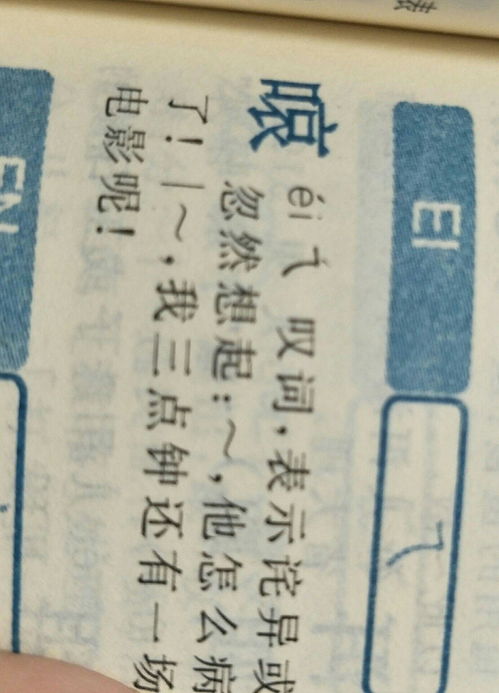 EI ㄟ
éi ㄟˊ 叹词，表示诧异或
忽然想起：～，他怎么病
了！|～，我三点钟还有一场
电影呢！
EN